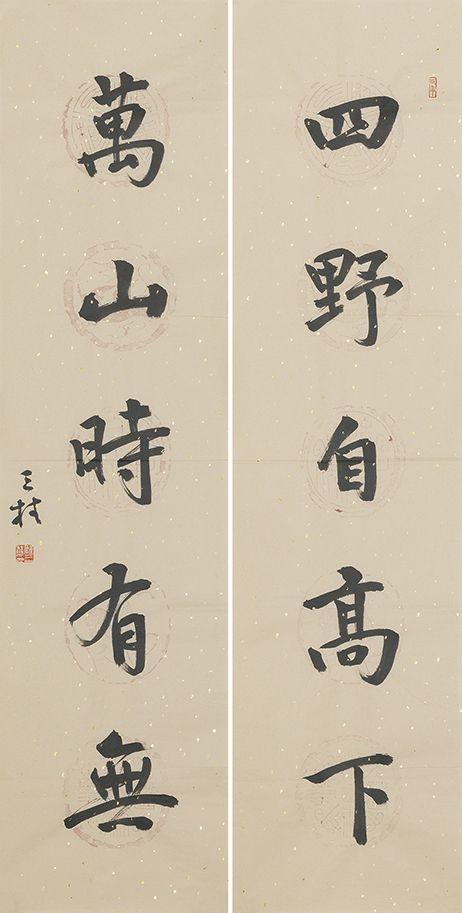 四野自高下
萬山時有無
三村